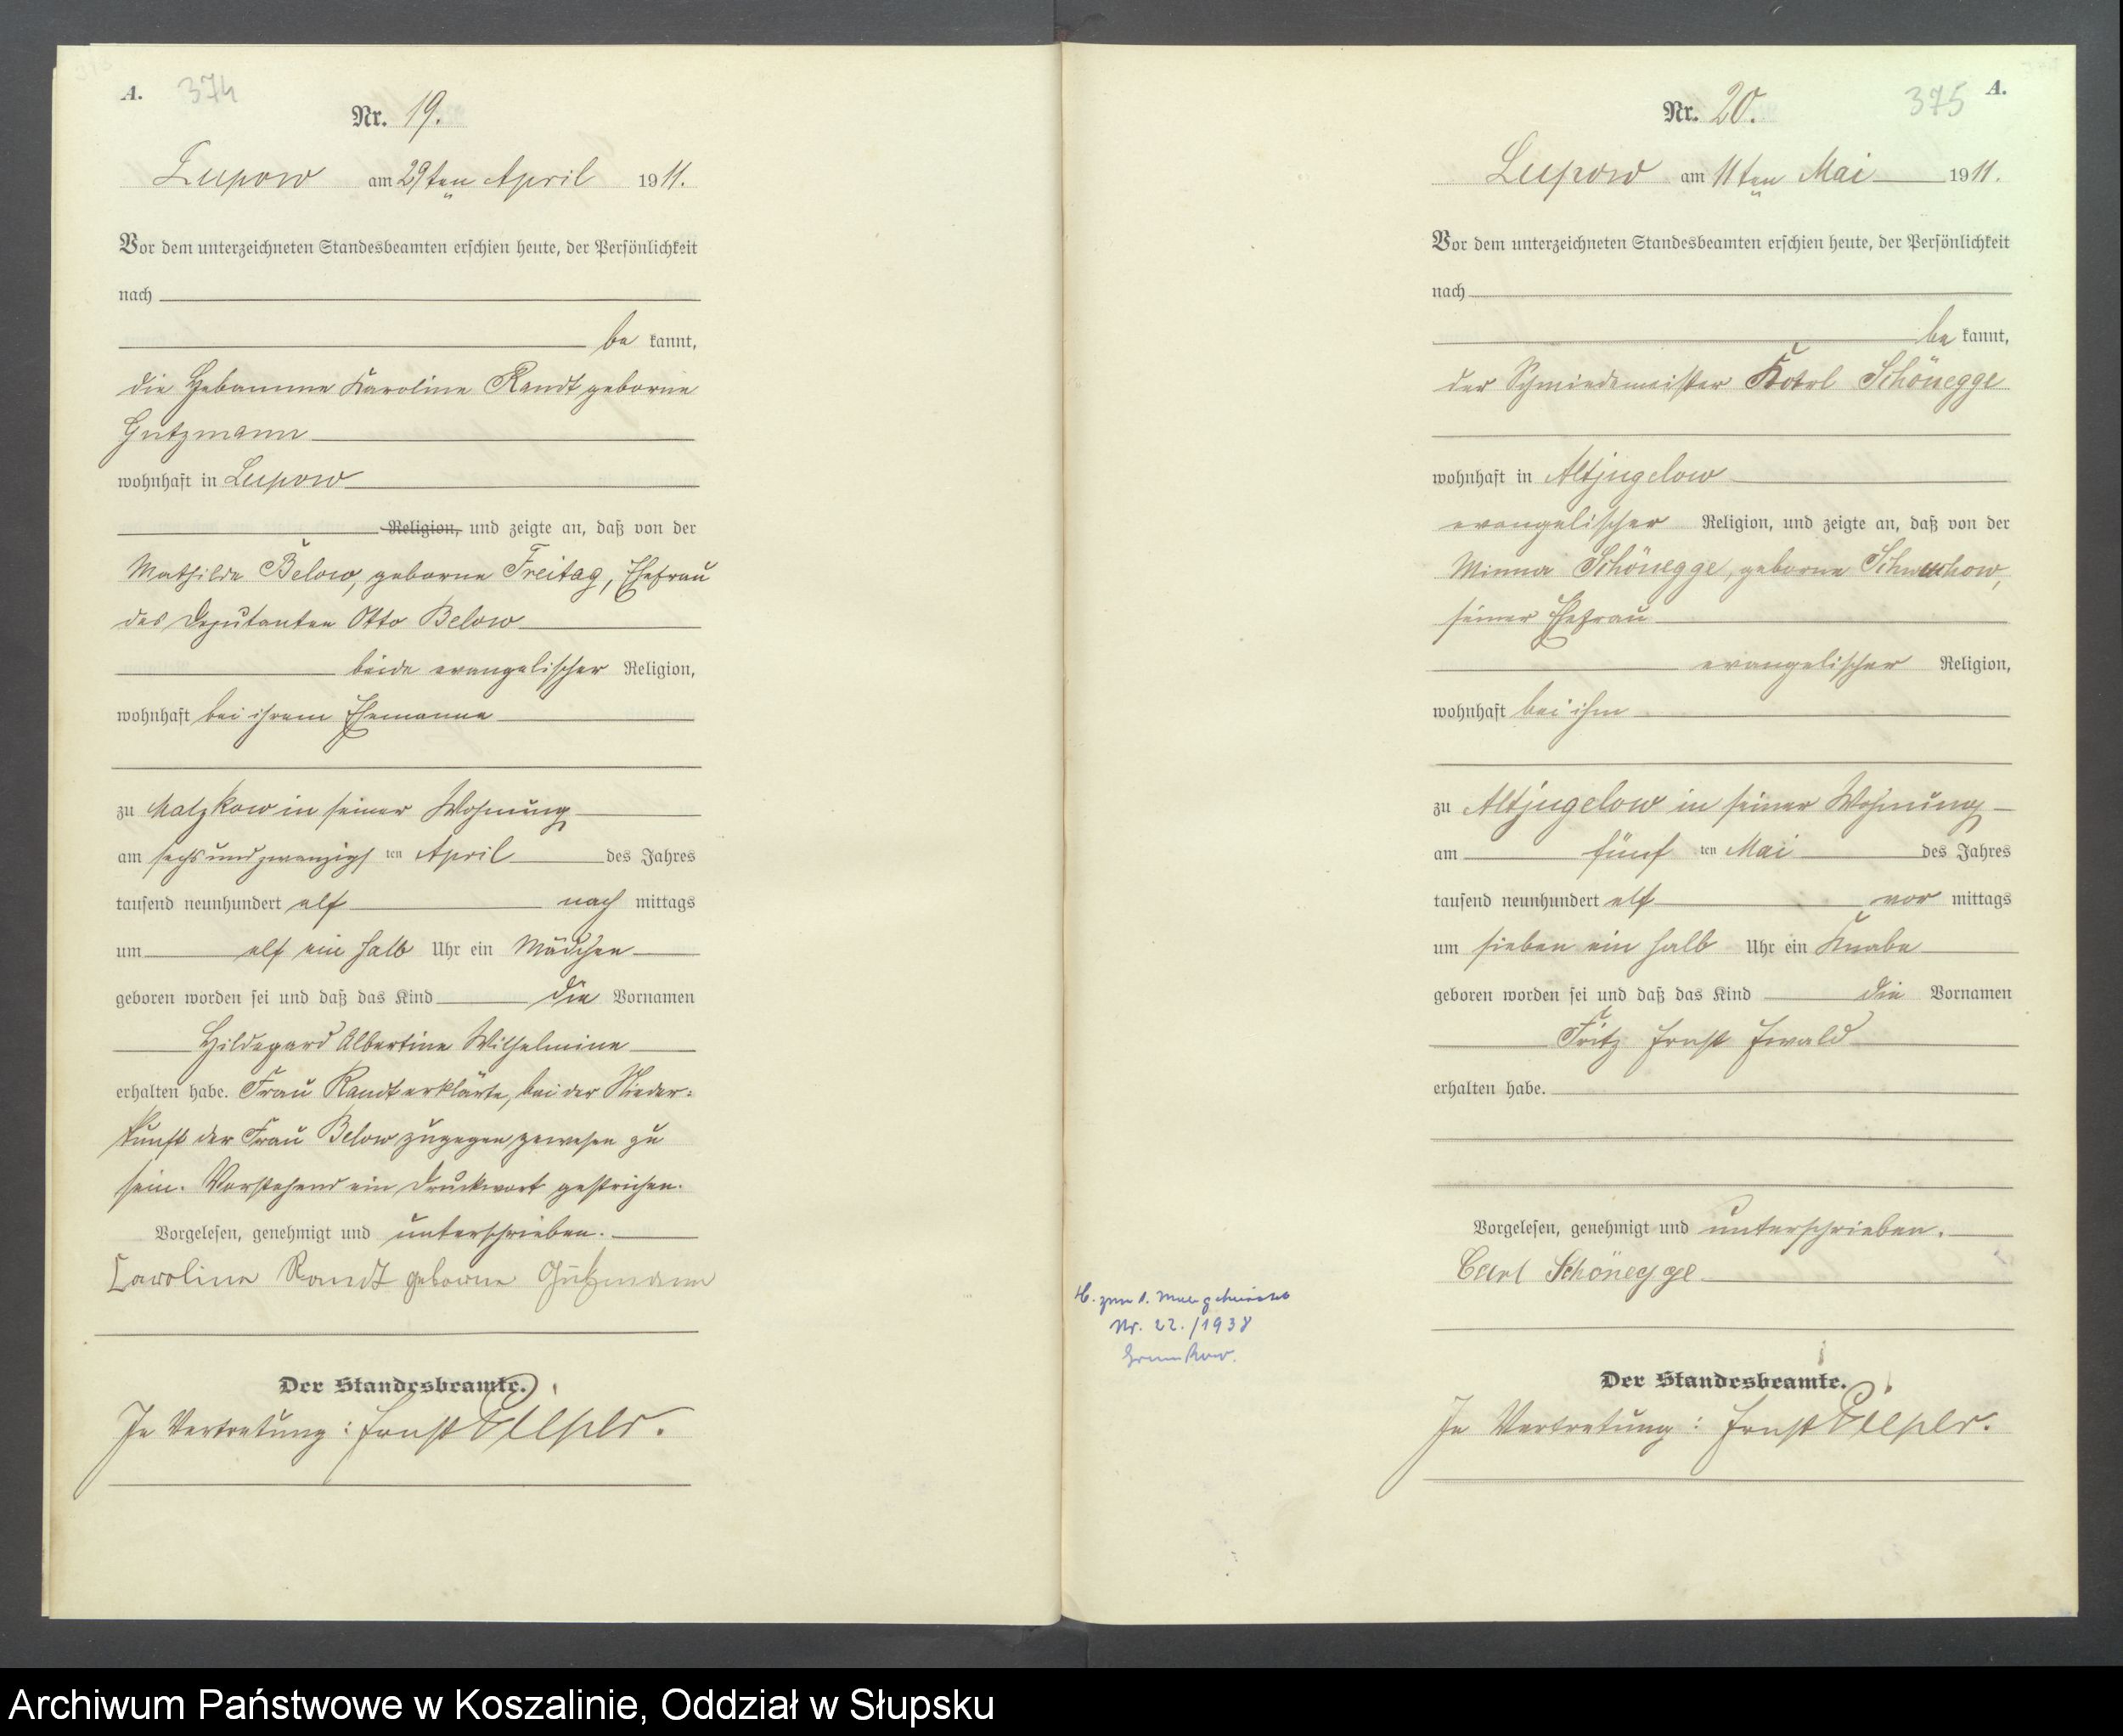 A. 374
Nr. 19.
Lupow am 29ten April 1911.
Vor dem unterzeichneten Standesbeamten erschien heute, der Persönlichkeit
nach
be kannt,
die Hebamme Karoline Randt geborne
Gutzmann
wohnhaft in Lupow
Religion, und zeigte an, daß von der
Mathilde Below, geborne Freitag, Ehefrau
des Deputanten Otto Below
beide evangelischer Religion,
wohnhaft bei ihrem Ehemanne
zu Malzkow in seiner Wohnung
am sechsundzwanzigs ten April des Jahres
tausend neunhundert elf nach mittags
um elf ein halb Uhr ein Mädchen
geboren worden sei und daß das Kind die Vornamen
Hildegard Albertine Wilhelmine
erhalten habe. Frau Randt erklärte, bei der Nieder=
kunft der Frau Below zugegen gewesen zu
sein. Vorstehend ein Druckwort gestrichen.
Vorgelesen, genehmigt und unterschrieben.
Caroline Randt geborne Gutzmann
Der Standesbeamte.
In Vertretung: Ernst
375 A.
Nr. 20.
Lupow am 11ten Mai 1911.
Vor dem unterzeichneten Standesbeamten erschien heute, der Persönlichkeit
nach
be kannt,
der Schmiedemeister Karl Schönegge
wohnhaft in Altjugelow
evangelischer Religion, und zeigte an, daß von der
Minna Schönegge, geborne Schwuchow,
seiner Ehefrau
evangelischer Religion,
wohnhaft bei ihm
zu Altjugelow in seiner Wohnung
am fünf ten Mai des Jahres
tausend neunhundert elf vor mittags
um sieben ein halb Uhr ein Knabe
geboren worden sei und daß das Kind die Vornamen
Fritz Ernst Ewald
erhalten habe.
Vorgelesen, genehmigt und unterschrieben.
Carl Schönegge
Der Standesbeamte.
In Vertretung: Ernst
H. zum 1. Mal geheiratet
Nr. 22./1938
Grumbkow.
Archiwum Państwowe w Koszalinie, Oddział w Słupsku